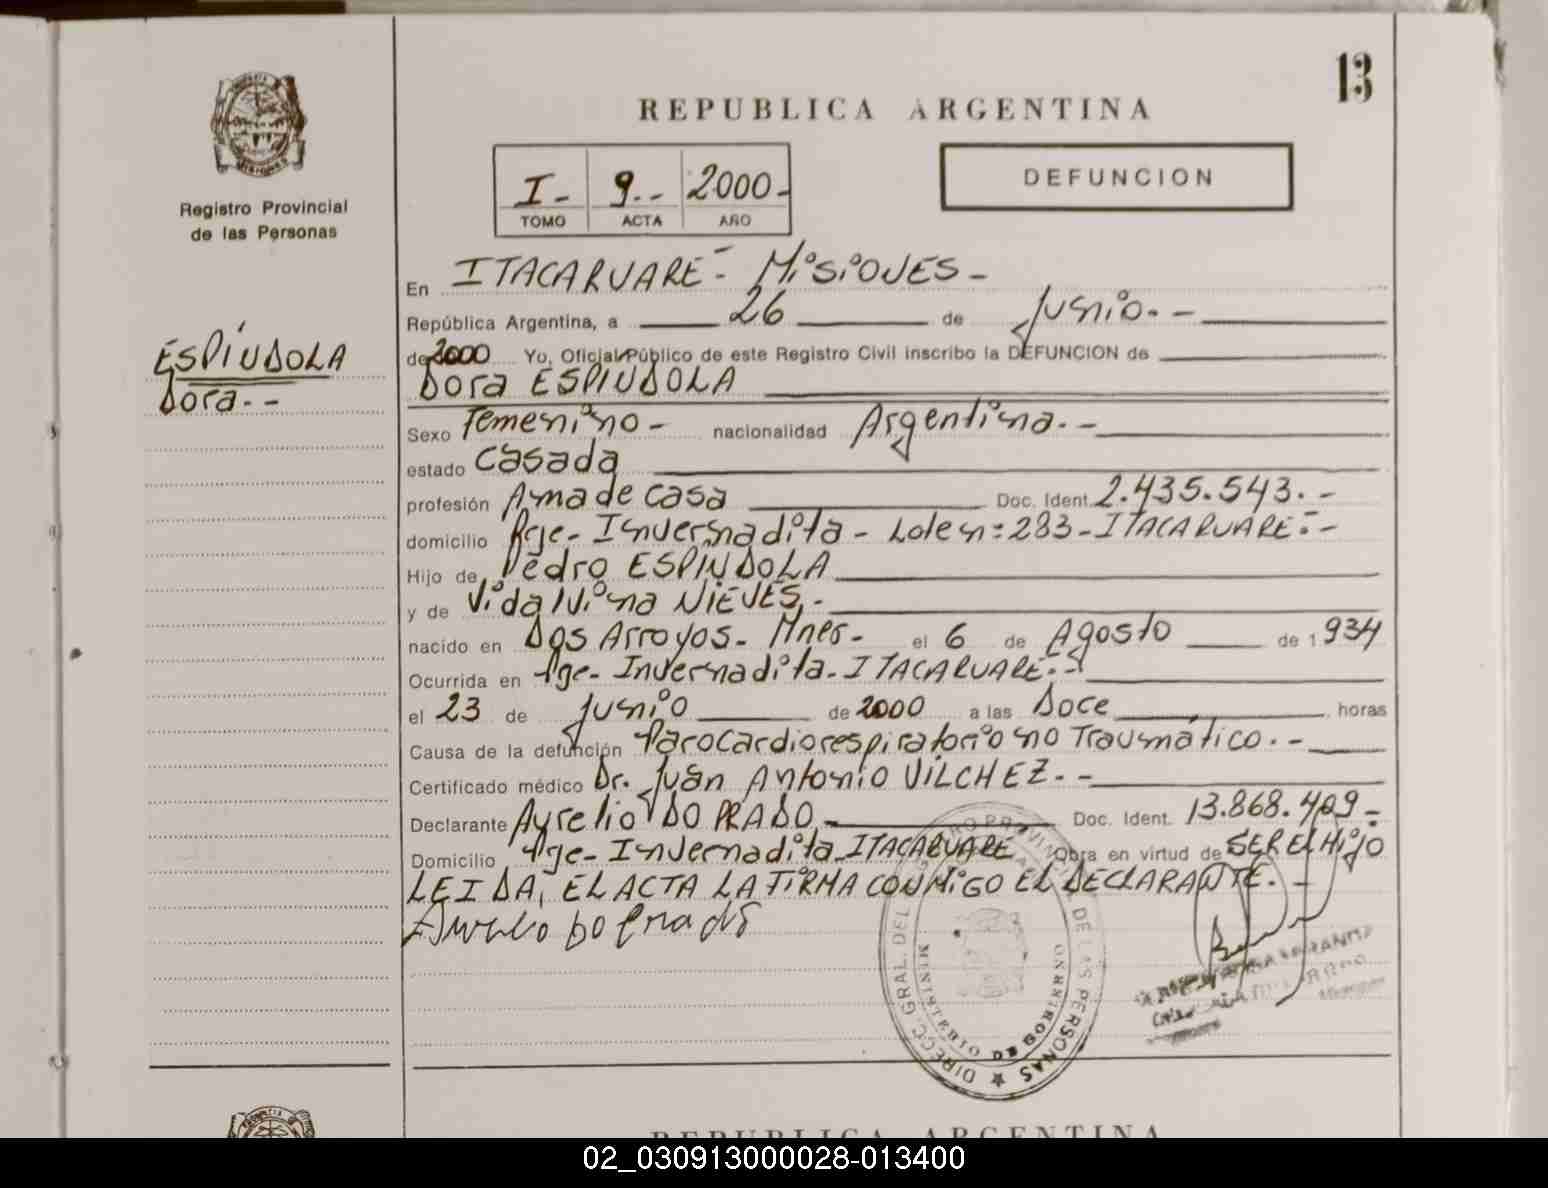 13
REPUBLICA ARGENTINA
I- 9-- 2000-
TOMO ACTA AÑO
DEFUNCION
MISIONES
Registro Provincial
de las Personas
ESPÍNDOLA
Dora--
En ITACARUARE- MiSiONES-
República Argentina, a 26 de Junio.-
de 2000 Yo, Oficial Público de este Registro Civil inscribo la DEFUNCION de
Dora ESPINDOLA
Sexo Femenino- nacionalidad Argentina.-
estado Casada
profesión Ama de casa Doc. Ident. 2.435.543.-
domicilio Pje- Invernadita- Lote n: 283-ITACARUARE.-
Hijo de Pedro ESPINDOLA
y de Vidalvina NIEVES.-
nacido en Dos Arroyos- Mnes- el 6 de Agosto de 1934
Ocurrida en Pje- Invernadita-ITACARUARE.-
el 23 de Junio de 2000 a las Doce horas
Causa de la defunción Parocardiorespiratorio no Traumático.-
Certificado médico Dr. Juan Antonio VILCHEZ.-
Declarante Aurelio DO PRADO Doc. Ident. 13.868.409-
Domicilio Pje- Invernadita-ITACARUARE Obra en virtud de SER EL HiJO
LEIDA, EL ACTA LA FIRMA CONMIGO EL DECLARANTE.-
Aurelio do Prado
DIRECC. GRAL. DEL REGISTRO PROVINCIAL DE LAS PERSONAS
MINISTERIO DE GOBIERNO
REPUBLICA ARGENTINA
02_030913000028-013400